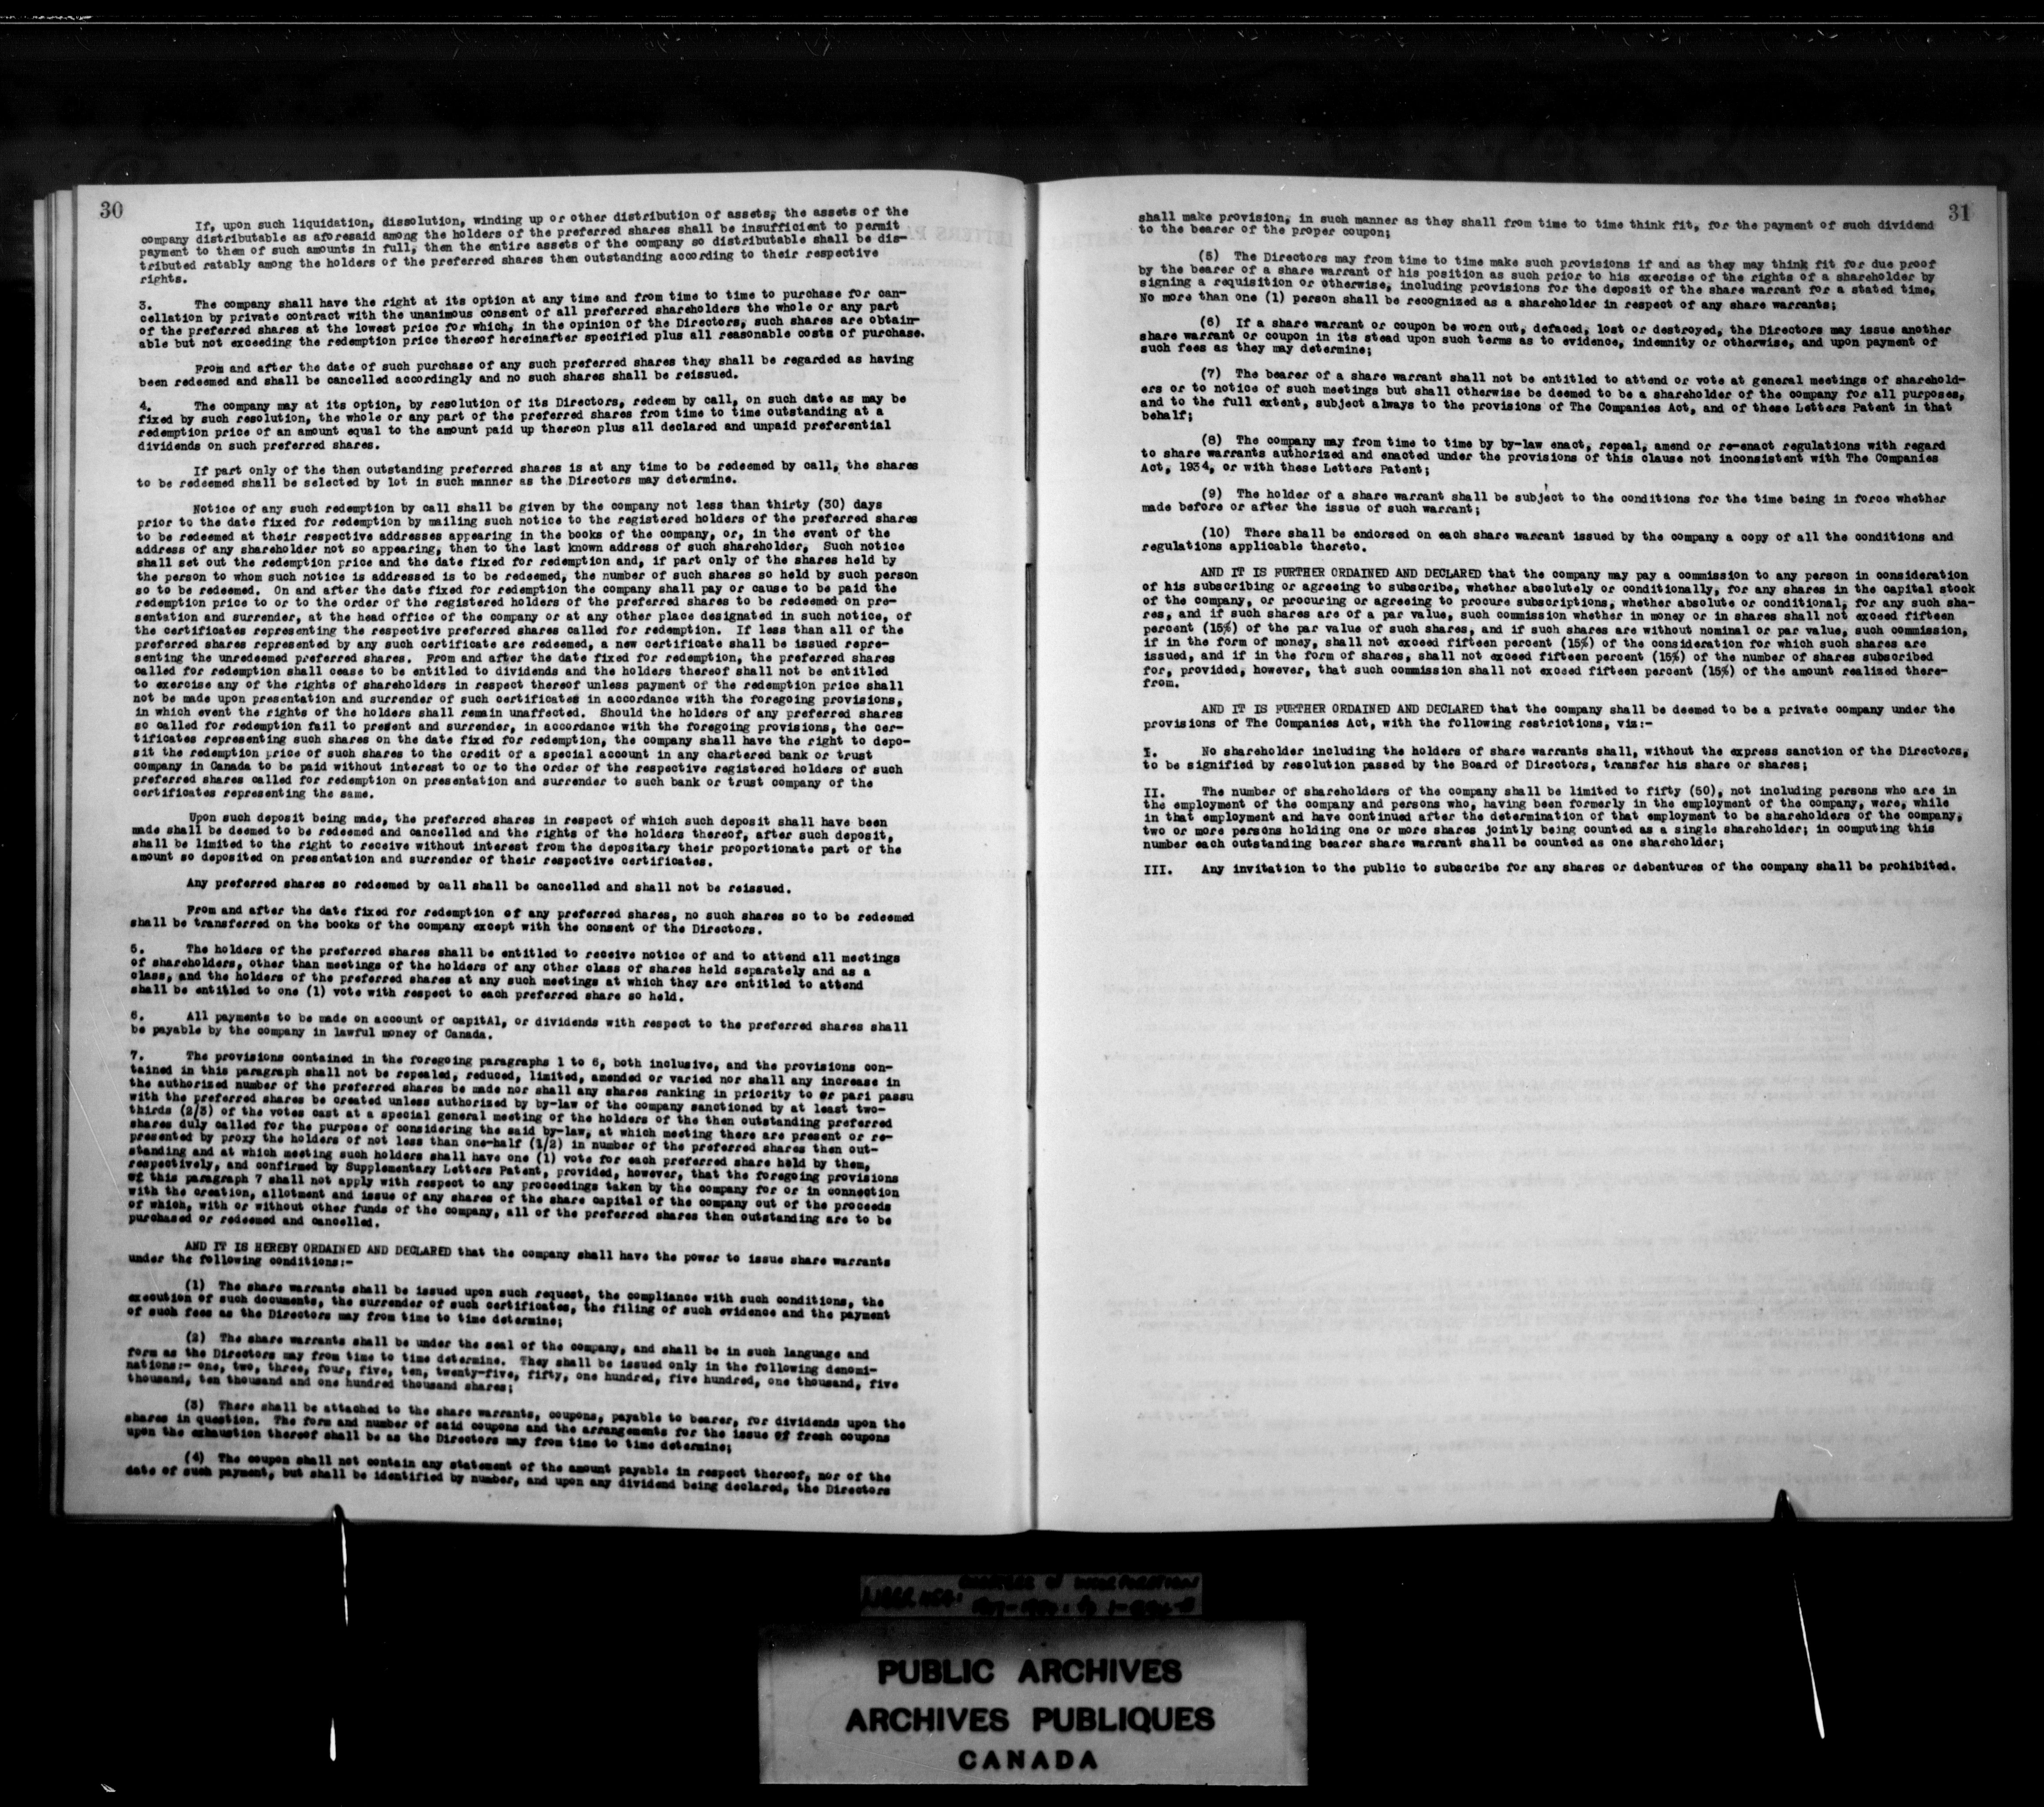 30
If, upon such liquidation, dissolution, winding up or other distribution of assets, the assets of the
company distributable as aforesaid among the holders of the preferred shares shall be insufficient to permit
payment to them of such amounts in full, then the entire assets of the company so distributable shall be dis-
tributed ratably among the holders of the preferred shares then outstanding according to their respective
rights.
3. The company shall have the right at its option at any time and from time to time to purchase for can-
cellation by private contract with the unanimous consent of all preferred shareholders the whole or any part
of the preferred shares at the lowest price for which, in the opinion of the Directors, such shares are obtain-
able but not exceeding the redemption price thereof hereinafter specified plus all reasonable costs of purchase.
From and after the date of such purchase of any such preferred shares they shall be regarded as having
been redeemed and shall be cancelled accordingly and no such shares shall be reissued.
4. The company may at its option, by resolution of its Directors, redeem by call, on such date as may be
fixed by such resolution, the whole or any part of the preferred shares from time to time outstanding at a
redemption price of an amount equal to the amount paid up thereon plus all declared and unpaid preferential
dividends on such preferred shares.
If part only of the then outstanding preferred shares is at any time to be redeemed by call, the shares
to be redeemed shall be selected by lot in such manner as the Directors may determine.
Notice of any such redemption by call shall be given by the company not less than thirty (30) days
prior to the date fixed for redemption by mailing such notice to the registered holders of the preferred shares
to be redeemed at their respective addresses appearing in the books of the company, or, in the event of the
address of any shareholder not so appearing, then to the last known address of such shareholder. Such notice
shall set out the redemption price and the date fixed for redemption and, if part only of the shares held by
the person to whom such notice is addressed is to be redeemed, the number of such shares so held by such person
so to be redeemed. On and after the date fixed for redemption the company shall pay or cause to be paid the
redemption price to or to the order of the registered holders of the preferred shares to be redeemed on pre-
sentation and surrender, at the head office of the company or at any other place designated in such notice, of
the certificates representing the respective preferred shares called for redemption. If less than all of the
preferred shares represented by any such certificate are redeemed, a new certificate shall be issued repre-
senting the unredeemed preferred shares. From and after the date fixed for redemption, the preferred shares
called for redemption shall cease to be entitled to dividends and the holders thereof shall not be entitled
to exercise any of the rights of shareholders in respect thereof unless payment of the redemption price shall
not be made upon presentation and surrender of such certificates in accordance with the foregoing provisions,
in which event the rights of the holders shall remain unaffected. Should the holders of any preferred shares
so called for redemption fail to present and surrender, in accordance with the foregoing provisions, the cer-
tificates representing such shares on the date fixed for redemption, the company shall have the right to depo-
sit the redemption price of such shares to the credit of a special account in any chartered bank or trust
company in Canada to be paid without interest to or to the order of the respective registered holders of such
preferred shares called for redemption on presentation and surrender to such bank or trust company of the
certificates representing the same.
Upon such deposit being made, the preferred shares in respect of which such deposit shall have been
made shall be deemed to be redeemed and cancelled and the rights of the holders thereof, after such deposit,
shall be limited to the right to receive without interest from the depositary their proportionate part of the
amount so deposited on presentation and surrender of their respective certificates.
Any preferred shares so redeemed by call shall be cancelled and shall not be reissued.
From and after the date fixed for redemption of any preferred shares, no such shares so to be redeemed
shall be transferred on the books of the company except with the consent of the Directors.
5. The holders of the preferred shares shall be entitled to receive notice of and to attend all meetings
of shareholders, other than meetings of the holders of any other class of shares held separately and as a
class, and the holders of the preferred shares at any such meetings at which they are entitled to attend
shall be entitled to one (1) vote with respect to each preferred share so held.
6. All payments to be made on account of capitAl, or dividends with respect to the preferred shares shall
be payable by the company in lawful money of Canada.
7. The provisions contained in the foregoing paragraphs 1 to 6, both inclusive, and the provisions con-
tained in this paragraph shall not be repealed, reduced, limited, amended or varied nor shall any increase in
the authorized number of the preferred shares be made nor shall any shares ranking in priority to or pari passu
with the preferred shares be created unless authorized by by-law of the company sanctioned by at least two-
thirds (2/3) of the votes cast at a special general meeting of the holders of the then outstanding preferred
shares duly called for the purpose of considering the said by-law, at which meeting there are present or re-
presented by proxy the holders of not less than one-half (1/2) in number of the preferred shares then out-
standing and at which meeting such holders shall have one (1) vote for each preferred share held by them,
respectively, and confirmed by Supplementary Letters Patent, provided, however, that the foregoing provisions
of this paragraph 7 shall not apply with respect to any proceedings taken by the company for or in connection
with the creation, allotment and issue of any shares of the share capital of the company out of the proceeds
of which, with or without other funds of the company, all of the preferred shares then outstanding are to be
purchased or redeemed and cancelled.
AND IT IS HEREBY ORDAINED AND DECLARED that the company shall have the power to issue share warrants
under the following conditions:-
(1) The share warrants shall be issued upon such request, the compliance with such conditions, the
execution of such documents, the surrender of such certificates, the filing of such evidence and the payment
of such fees as the Directors may from time to time determine;
(2) The share warrants shall be under the seal of the company, and shall be in such language and
form as the Directors may from time to time determine. They shall be issued only in the following denomi-
nations:- one, two, three, four, five, ten, twenty-five, fifty, one hundred, five hundred, one thousand, five
thousand, ten thousand and one hundred thousand shares;
(3) There shall be attached to the share warrants, coupons, payable to bearer, for dividends upon the
shares in question. The form and number of said coupons and the arrangements for the issue of fresh coupons
upon the exhaustion thereof shall be as the Directors may from time to time determine;
(4) The coupon shall not contain any statement of the amount payable in respect thereof, nor of the
date of such payment, but shall be identified by number, and upon any dividend being declared, the Directors
31
shall make provision, in such manner as they shall from time to time think fit, for the payment of such dividend
to the bearer of the proper coupon;
(5) The Directors may from time to time make such provisions if and as they may think fit for due proof
by the bearer of a share warrant of his position as such prior to his exercise of the rights of a shareholder by
signing a requisition or otherwise, including provisions for the deposit of the share warrant for a stated time.
No more than one (1) person shall be recognized as a shareholder in respect of any share warrants;
(6) If a share warrant or coupon be worn out, defaced, lost or destroyed, the Directors may issue another
share warrant or coupon in its stead upon such terms as to evidence, indemnity or otherwise, and upon payment of
such fees as they may determine;
(7) The bearer of a share warrant shall not be entitled to attend or vote at general meetings of sharehold-
ers or to notice of such meetings but shall otherwise be deemed to be a shareholder of the company for all purposes,
and to the full extent, subject always to the provisions of The Companies Act, and of these Letters Patent in that
behalf;
(8) The company may from time to time by by-law enact, repeal, amend or re-enact regulations with regard
to share warrants authorized and enacted under the provisions of this clause not inconsistent with The Companies
Act, 1934, or with these Letters Patent;
(9) The holder of a share warrant shall be subject to the conditions for the time being in force whether
made before or after the issue of such warrant;
(10) There shall be endorsed on each share warrant issued by the company a copy of all the conditions and
regulations applicable thereto.
AND IT IS FURTHER ORDAINED AND DECLARED that the company may pay a commission to any person in consideration
of his subscribing or agreeing to subscribe, whether absolutely or conditionally, for any shares in the capital stock
of the company, or procuring or agreeing to procure subscriptions, whether absolute or conditional, for any such sha-
res, and if such shares are of a par value, such commission whether in money or in shares shall not exceed fifteen
percent (15%) of the par value of such shares, and if such shares are without nominal or par value, such commission,
if in the form of money, shall not exceed fifteen percent (15%) of the consideration for which such shares are
issued, and if in the form of shares, shall not exceed fifteen percent (15%) of the number of shares subscribed
for, provided, however, that such commission shall not exceed fifteen percent (15%) of the amount realized there-
from.
AND IT IS FURTHER ORDAINED AND DECLARED that the company shall be deemed to be a private company under the
provisions of The Companies Act, with the following restrictions, viz:-
I. No shareholder including the holders of share warrants shall, without the express sanction of the Directors,
to be signified by resolution passed by the Board of Directors, transfer his share or shares;
II. The number of shareholders of the company shall be limited to fifty (50), not including persons who are in
the employment of the company and persons who, having been formerly in the employment of the company, were, while
in that employment and have continued after the determination of that employment to be shareholders of the company,
two or more persons holding one or more shares jointly being counted as a single shareholder; in computing this
number each outstanding bearer share warrant shall be counted as one shareholder;
III. Any invitation to the public to subscribe for any shares or debentures of the company shall be prohibited.
PUBLIC ARCHIVES
ARCHIVES PUBLIQUES
CANADA